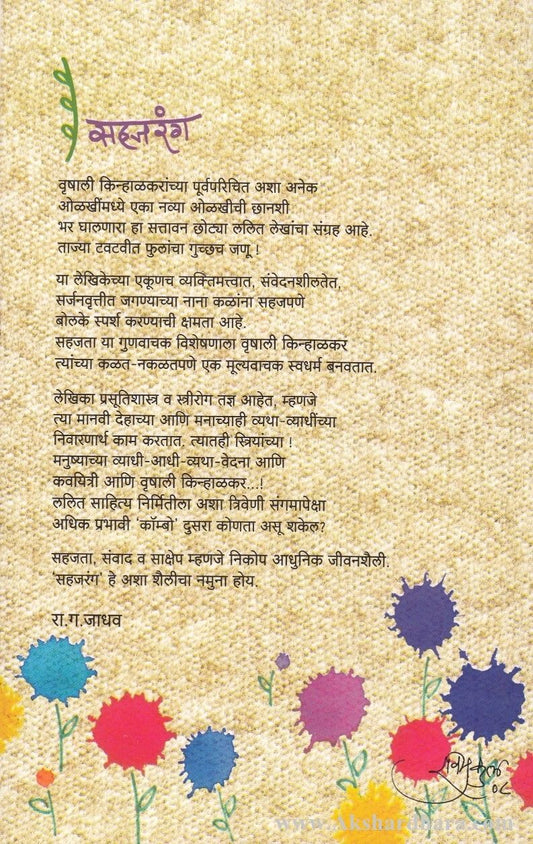 सहजरंग
वृषाली किन्हाळकरांच्या पूर्वपरिचित अशा अनेक
ओळखींमध्ये एका नव्या ओळखीची छानशी
भर घालणारा हा सत्तावन छोट्या ललित लेखांचा संग्रह आहे.
ताज्या टवटवीत फुलांचा गुच्छच जणू !
या लेखिकेच्या एकूणच व्यक्तिमत्त्वात, संवेदनशीलतेत,
सर्जनवृत्तीत जगण्याच्या नाना कळांना सहजपणे
बोलके स्पर्श करण्याची क्षमता आहे.
सहजता या गुणवाचक विशेषणाला वृषाली किन्हाळकर
त्यांच्या कळत-नकळतपणे एक मूल्यवाचक स्वधर्म बनवतात.
लेखिका प्रसूतिशास्त्र व स्त्रीरोग तज्ञ आहेत, म्हणजे
त्या मानवी देहाच्या आणि मनाच्याही व्यथा-व्याधींच्या
निवारणार्थ काम करतात. त्यातही स्त्रियांच्या !
मनुष्याच्या व्याधी-आधी-व्यथा-वेदना आणि
कवयित्री आणि वृषाली किन्हाळकर...!
ललित साहित्य निर्मितीला अशा त्रिवेणी संगमापेक्षा
अधिक प्रभावी 'कॉम्बो' दुसरा कोणता असू शकेल?
सहजता, संवाद व साक्षेप म्हणजे निकोप आधुनिक जीवनशैली.
'सहजरंग' हे अशा शैलीचा नमुना होय.
रा.ग.जाधव
०८
www.Akshardhara.com